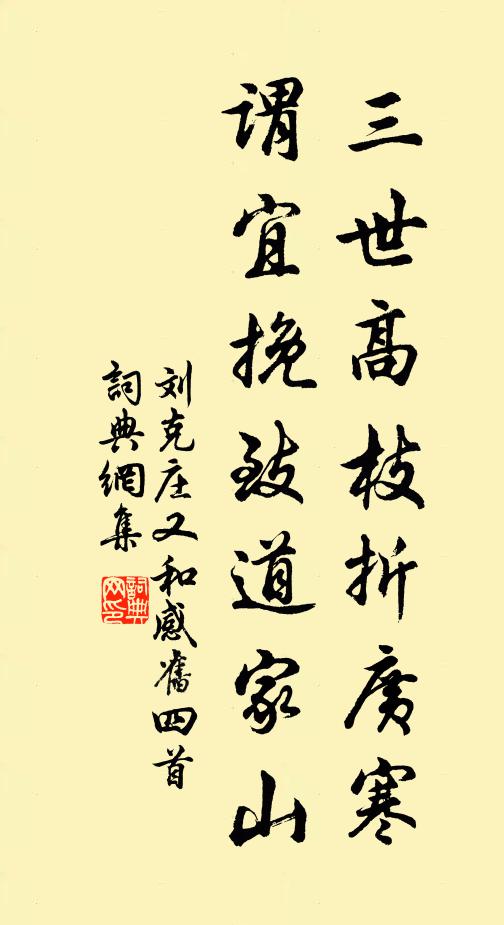 三世高枝折廣寒
謂宜挽致道家山
刘克庄又和感舊四首
詞典網集
詞典网印